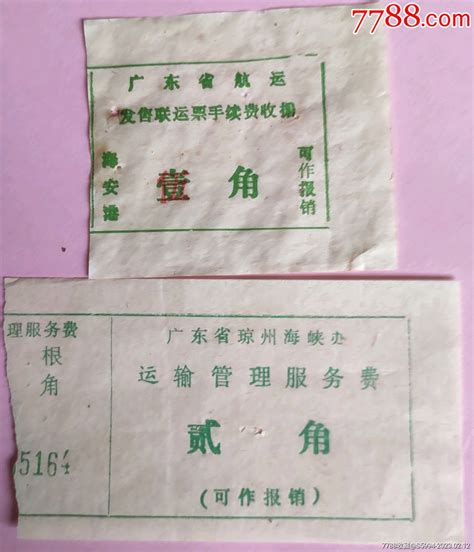 7788.com
广东省航运
发售联运票手续费收据
海安港
壹角
可作报销
理服务费
根
角
5164
广东省琼州海峡办
运输管理服务费
贰角
(可作报销)
7788收藏@S5994-2023.02.12